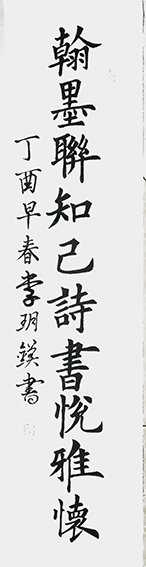 翰墨聯知己詩書悅雅懷
丁酉早春李玥鍈書